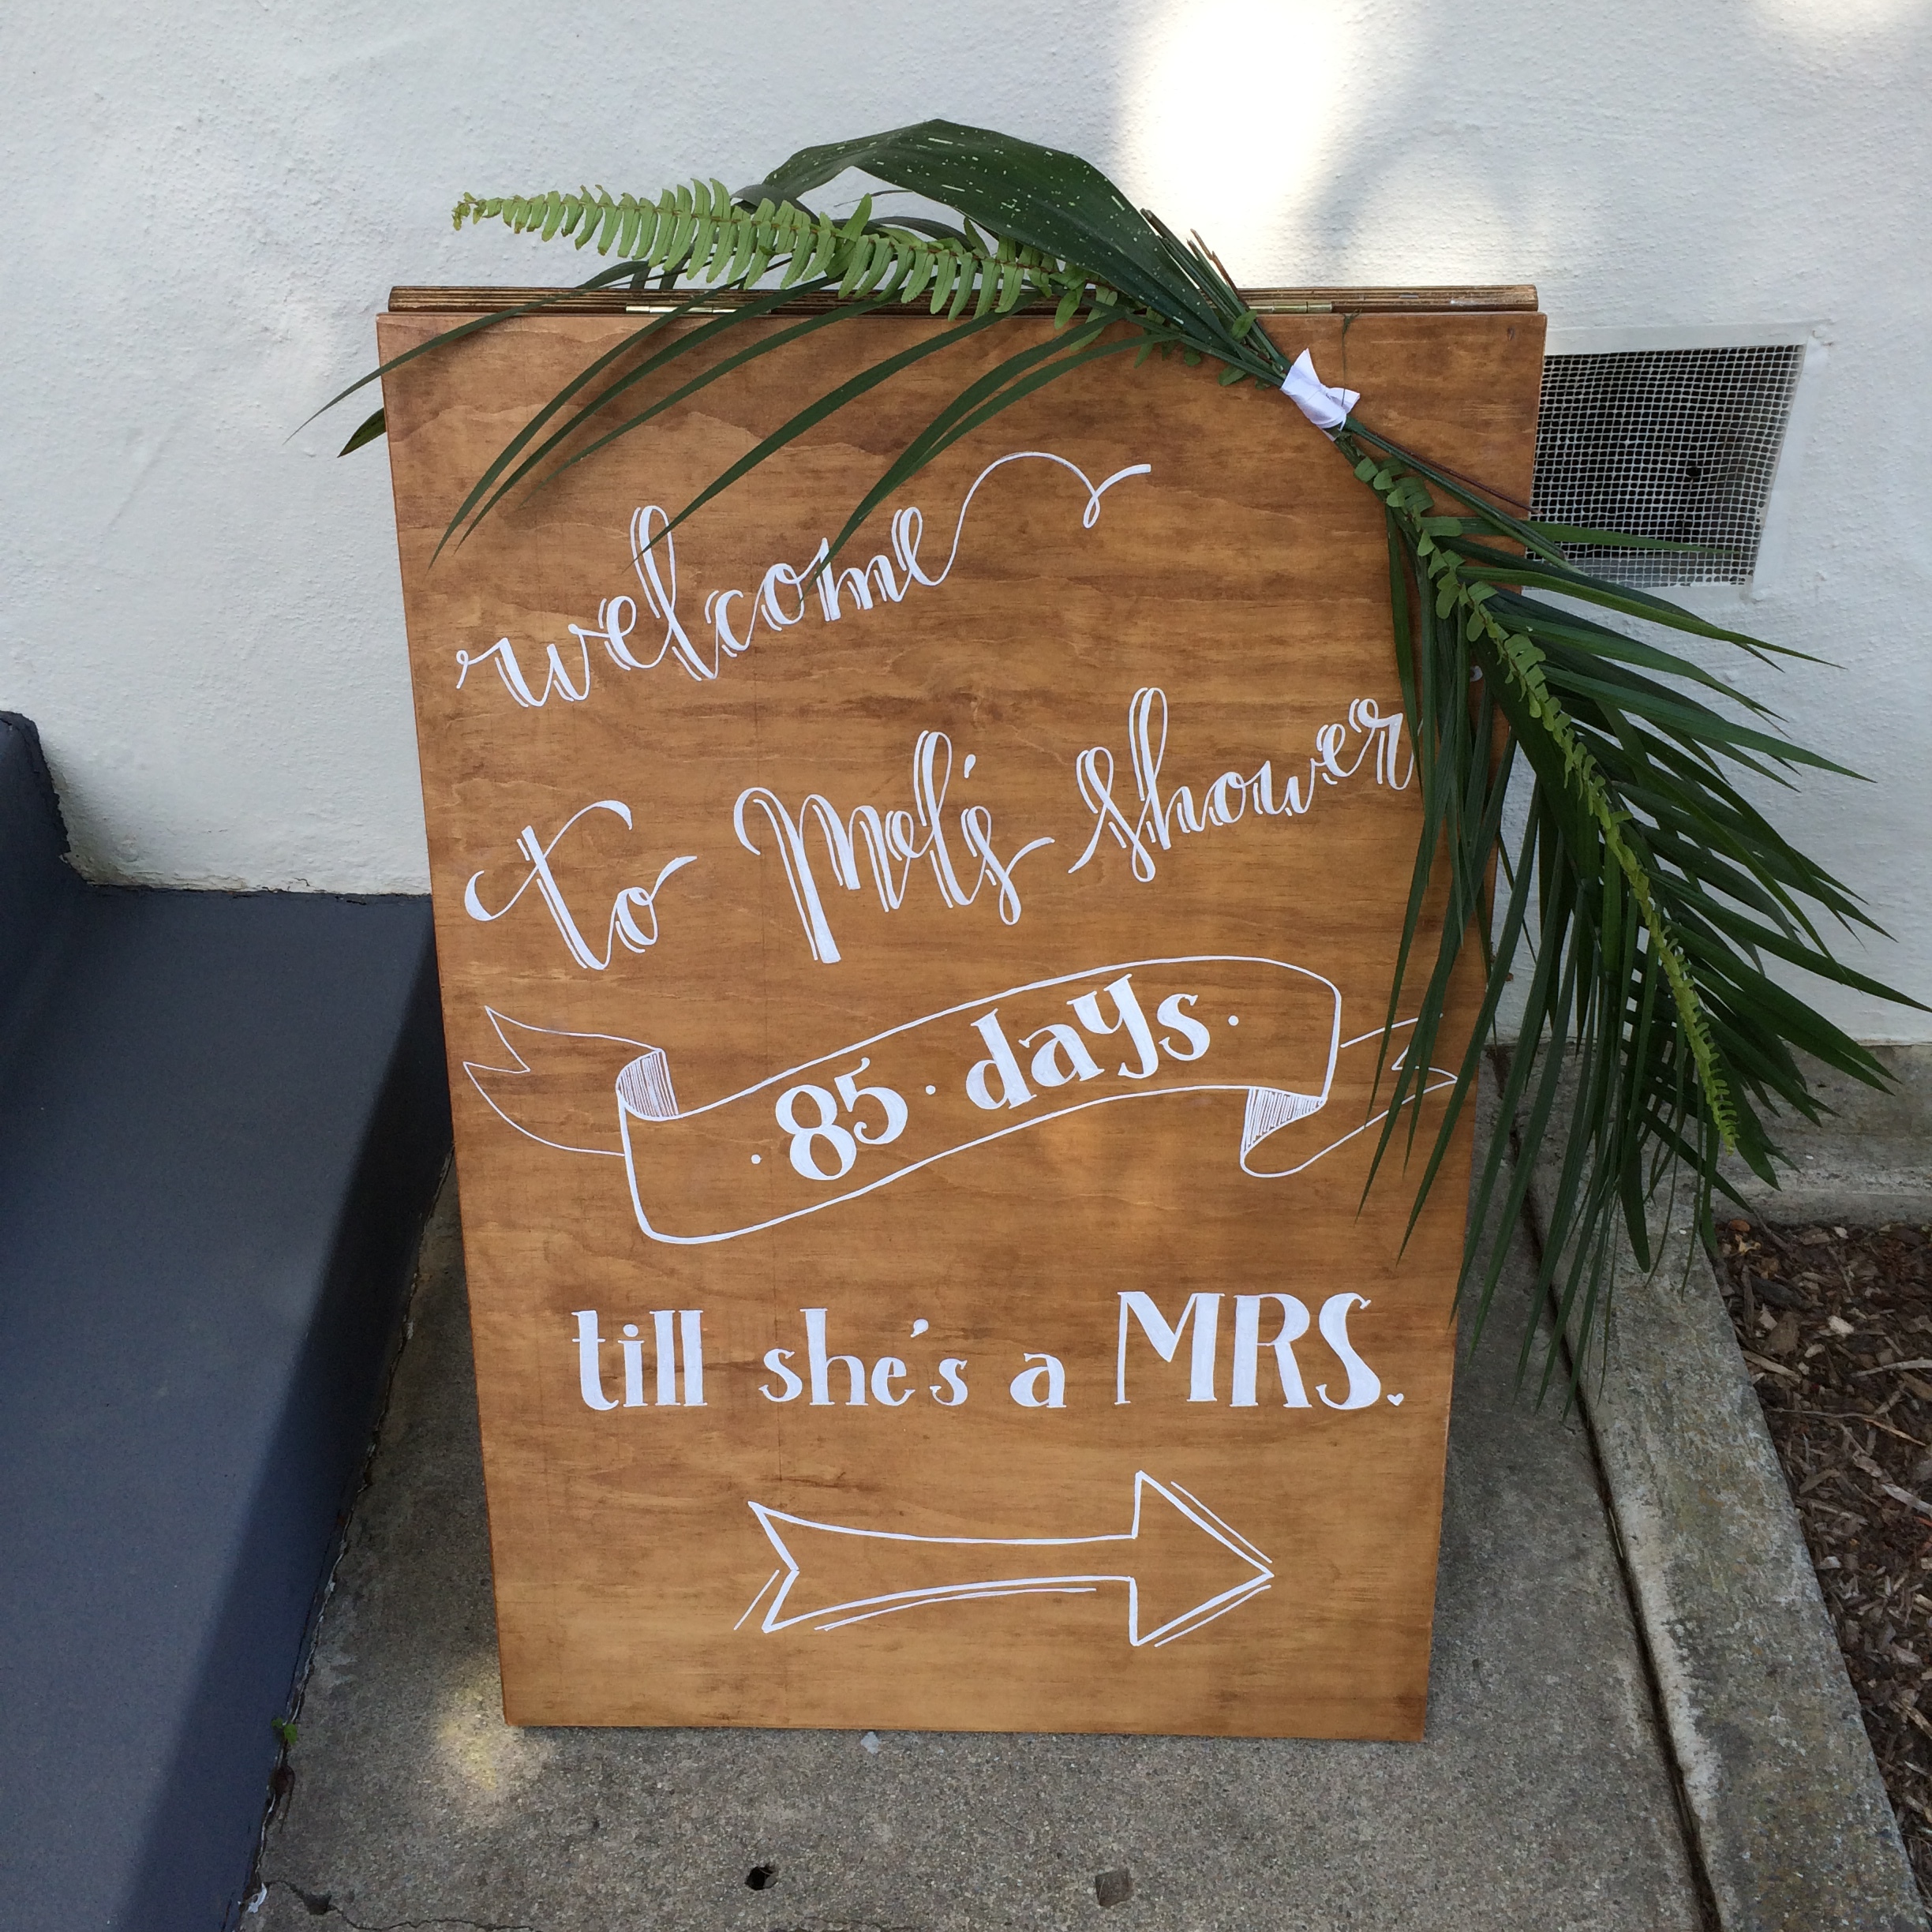 welcome
to Mel's shower
· 85 · days ·
till she's a MRS.